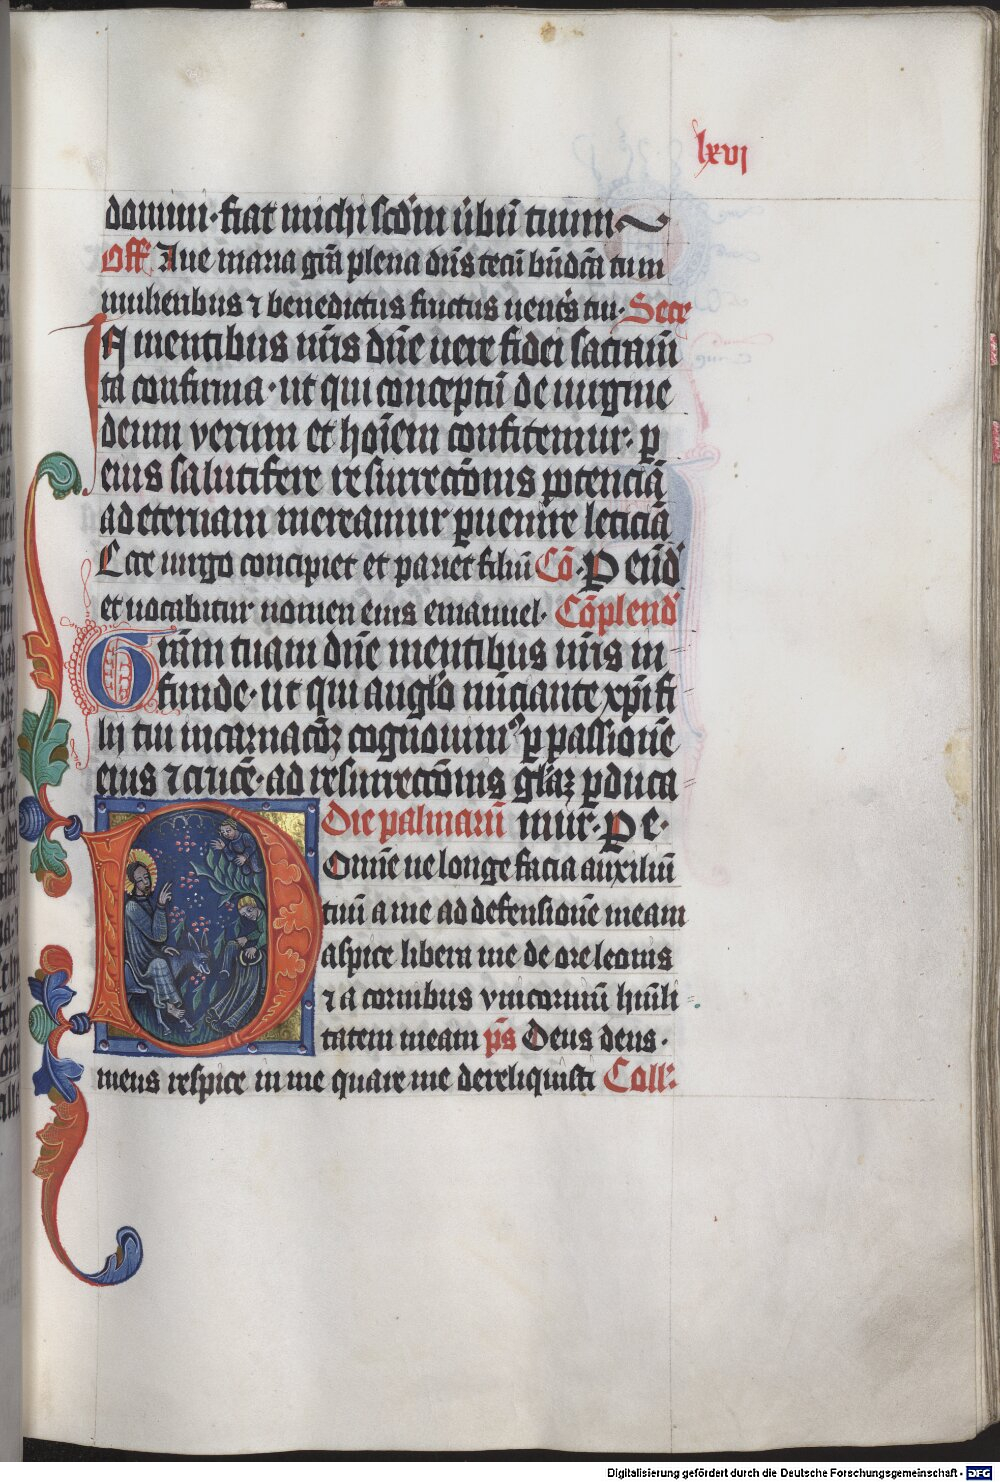 lxvj
domini · fiat michi scdm ubū tuum
Off Aue maria grā plena dns tecū bndcā tu in
mulieribus ⁊ benedictus fructus uentˢ tui · Secr
In mentibus nris dne uere fidei sacram
ta confirma · ut qui conceptū de uirgine
deum verum et hoīem confitemur · p
eius salutifere resurrectōnis potenciā
ad eternam mereamur puenire leticiā
Ecce uirgo concipiet et pariet filiū Cō · P end
et uocabitur nomen eius emanuel · Cōplend
Grām tuam dne mentibus nris in
funde · ut qui anglo nūciante xpi fi
lij tui incarnacōꝫ cognouimꝰ p passionē
eius ⁊ crucē · ad resurrectōnis glaꝫ pduca
Die palmarū mur · P e ·
Domine ne longe facia auxiliū
tuū a me ad defensionē meam
aspice libera me de ore leonis
⁊ a cornibus vnicorniū humili
tatem meam ps Deus deus ·
meus respice in me quare me dereliquisti Coll
Digitalisierung gefördert durch die Deutsche Forschungsgemeinschaft - DFG